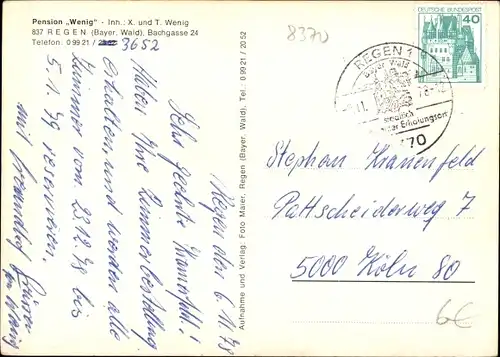 Pension „Wenig" - Inh.: X. und T. Wenig
837 REGEN (Bayer. Wald), Bachgasse 24
Telefon: 0 99 21 / 3652
8370
DEUTSCHE BUNDESPOST
40
REGEN 1
Bayer. Wald
staatlich
Erholungsort
70
Regen den 6.11.78
Sehr geehrte
Haben Ihre Zimmerbestellung
erhalten und werden alle
Zimmer vom 23.12.78 bis
5.1.79 reservieren.
mit freundlichen Grüßen
Fam. Wenig
Aufnahme und Verlag: Foto Maier, Regen (Bayer. Wald), Tel.: 0 99 21 / 20 52
Stephan Kranenfeld
Pattscheiderweg 7
5000 Köln 80
6€